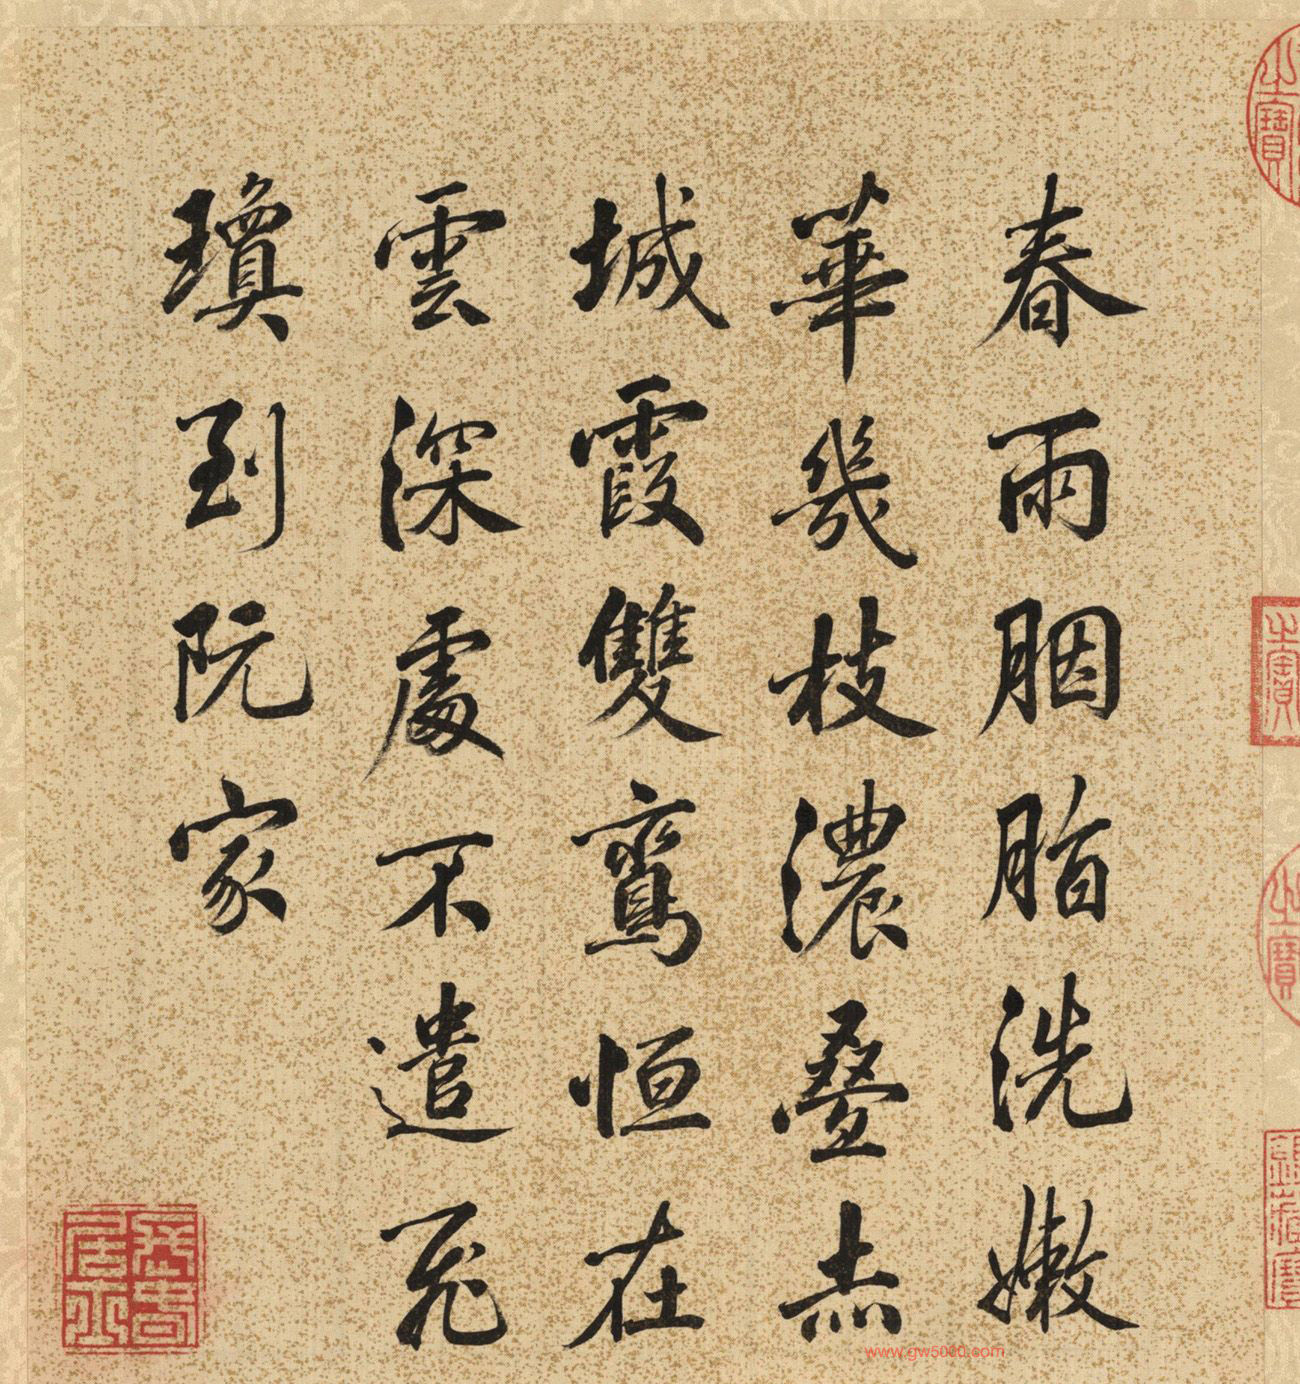 春雨胭脂洗嫩
華幾枝濃疊赤
城霞雙鸞恒在
雲深處不遣飛
瓊到阮家
之寶
之寶
之寶
www.gw5000.com